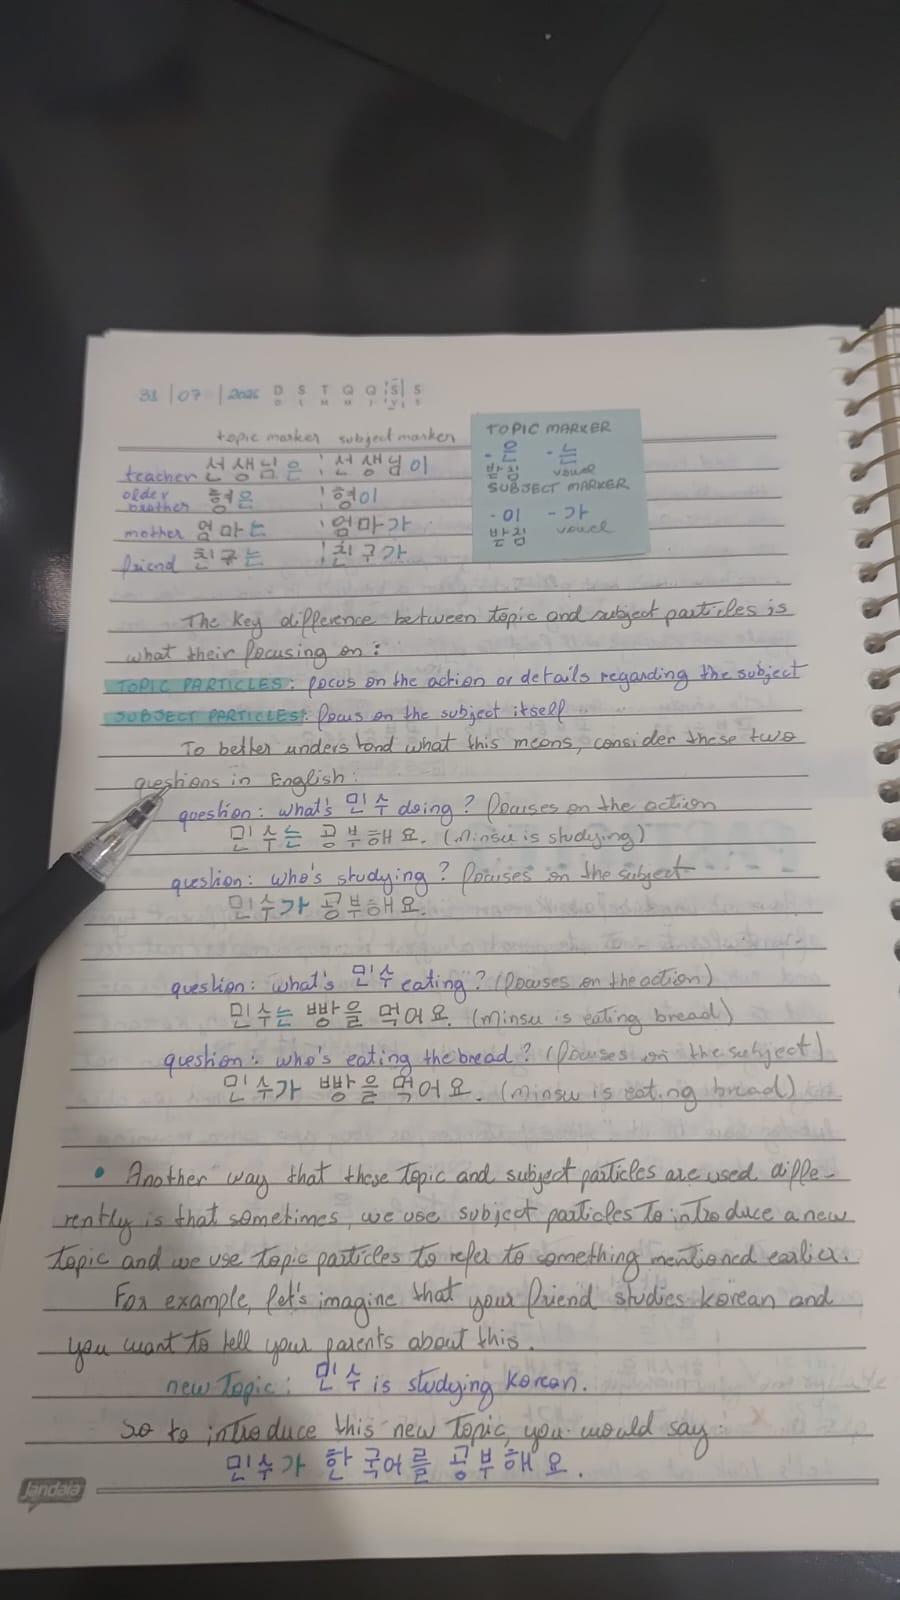 31 | 07 | 2026 D S T Q Q S S
topic marker subject marker
teacher 선생님은 선생님이
older brother 형은 형이
mother 엄마는 엄마가
friend 친구는 친구가
TOPIC MARKER
-은 -는
받침 vowel
SUBJECT MARKER
-이 -가
받침 vowel
The Key difference between topic and subject particles is
what their focusing on:
TOPIC PARTICLES: focus on the action or details regarding the subject
SUBJECT PARTICLES: focus on the subject itself
To better understand what this means, consider these two
questions in English:
question: what's 민수 doing? focuses on the action
민수는 공부해요. (Minsu is studying)
question: who's studying? focuses on the subject
민수가 공부해요.
question: what's 민수 eating? (focuses on the action)
민수는 빵을 먹어요. (Minsu is eating bread)
question: who's eating the bread? (focuses on the subject)
민수가 빵을 먹어요. (Minsu is eating bread)
• Another way that these topic and subject particles are used diffe-
rently is that sometimes, we use subject particles to introduce a new
topic and we use topic particles to refer to something mentioned earlier.
For example, let's imagine that your friend studies korean and
you want to tell your parents about this.
new topic: 민수 is studying Korean.
so to introduce this new topic, you would say:
민수가 한국어를 공부해요.
Jandaia